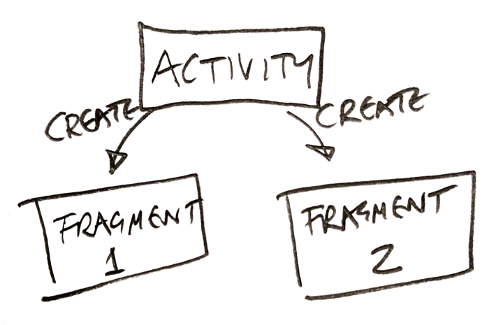 ACTIVITY
CREATE
CREATE
FRAGMENT
1
FRAGMENT
2